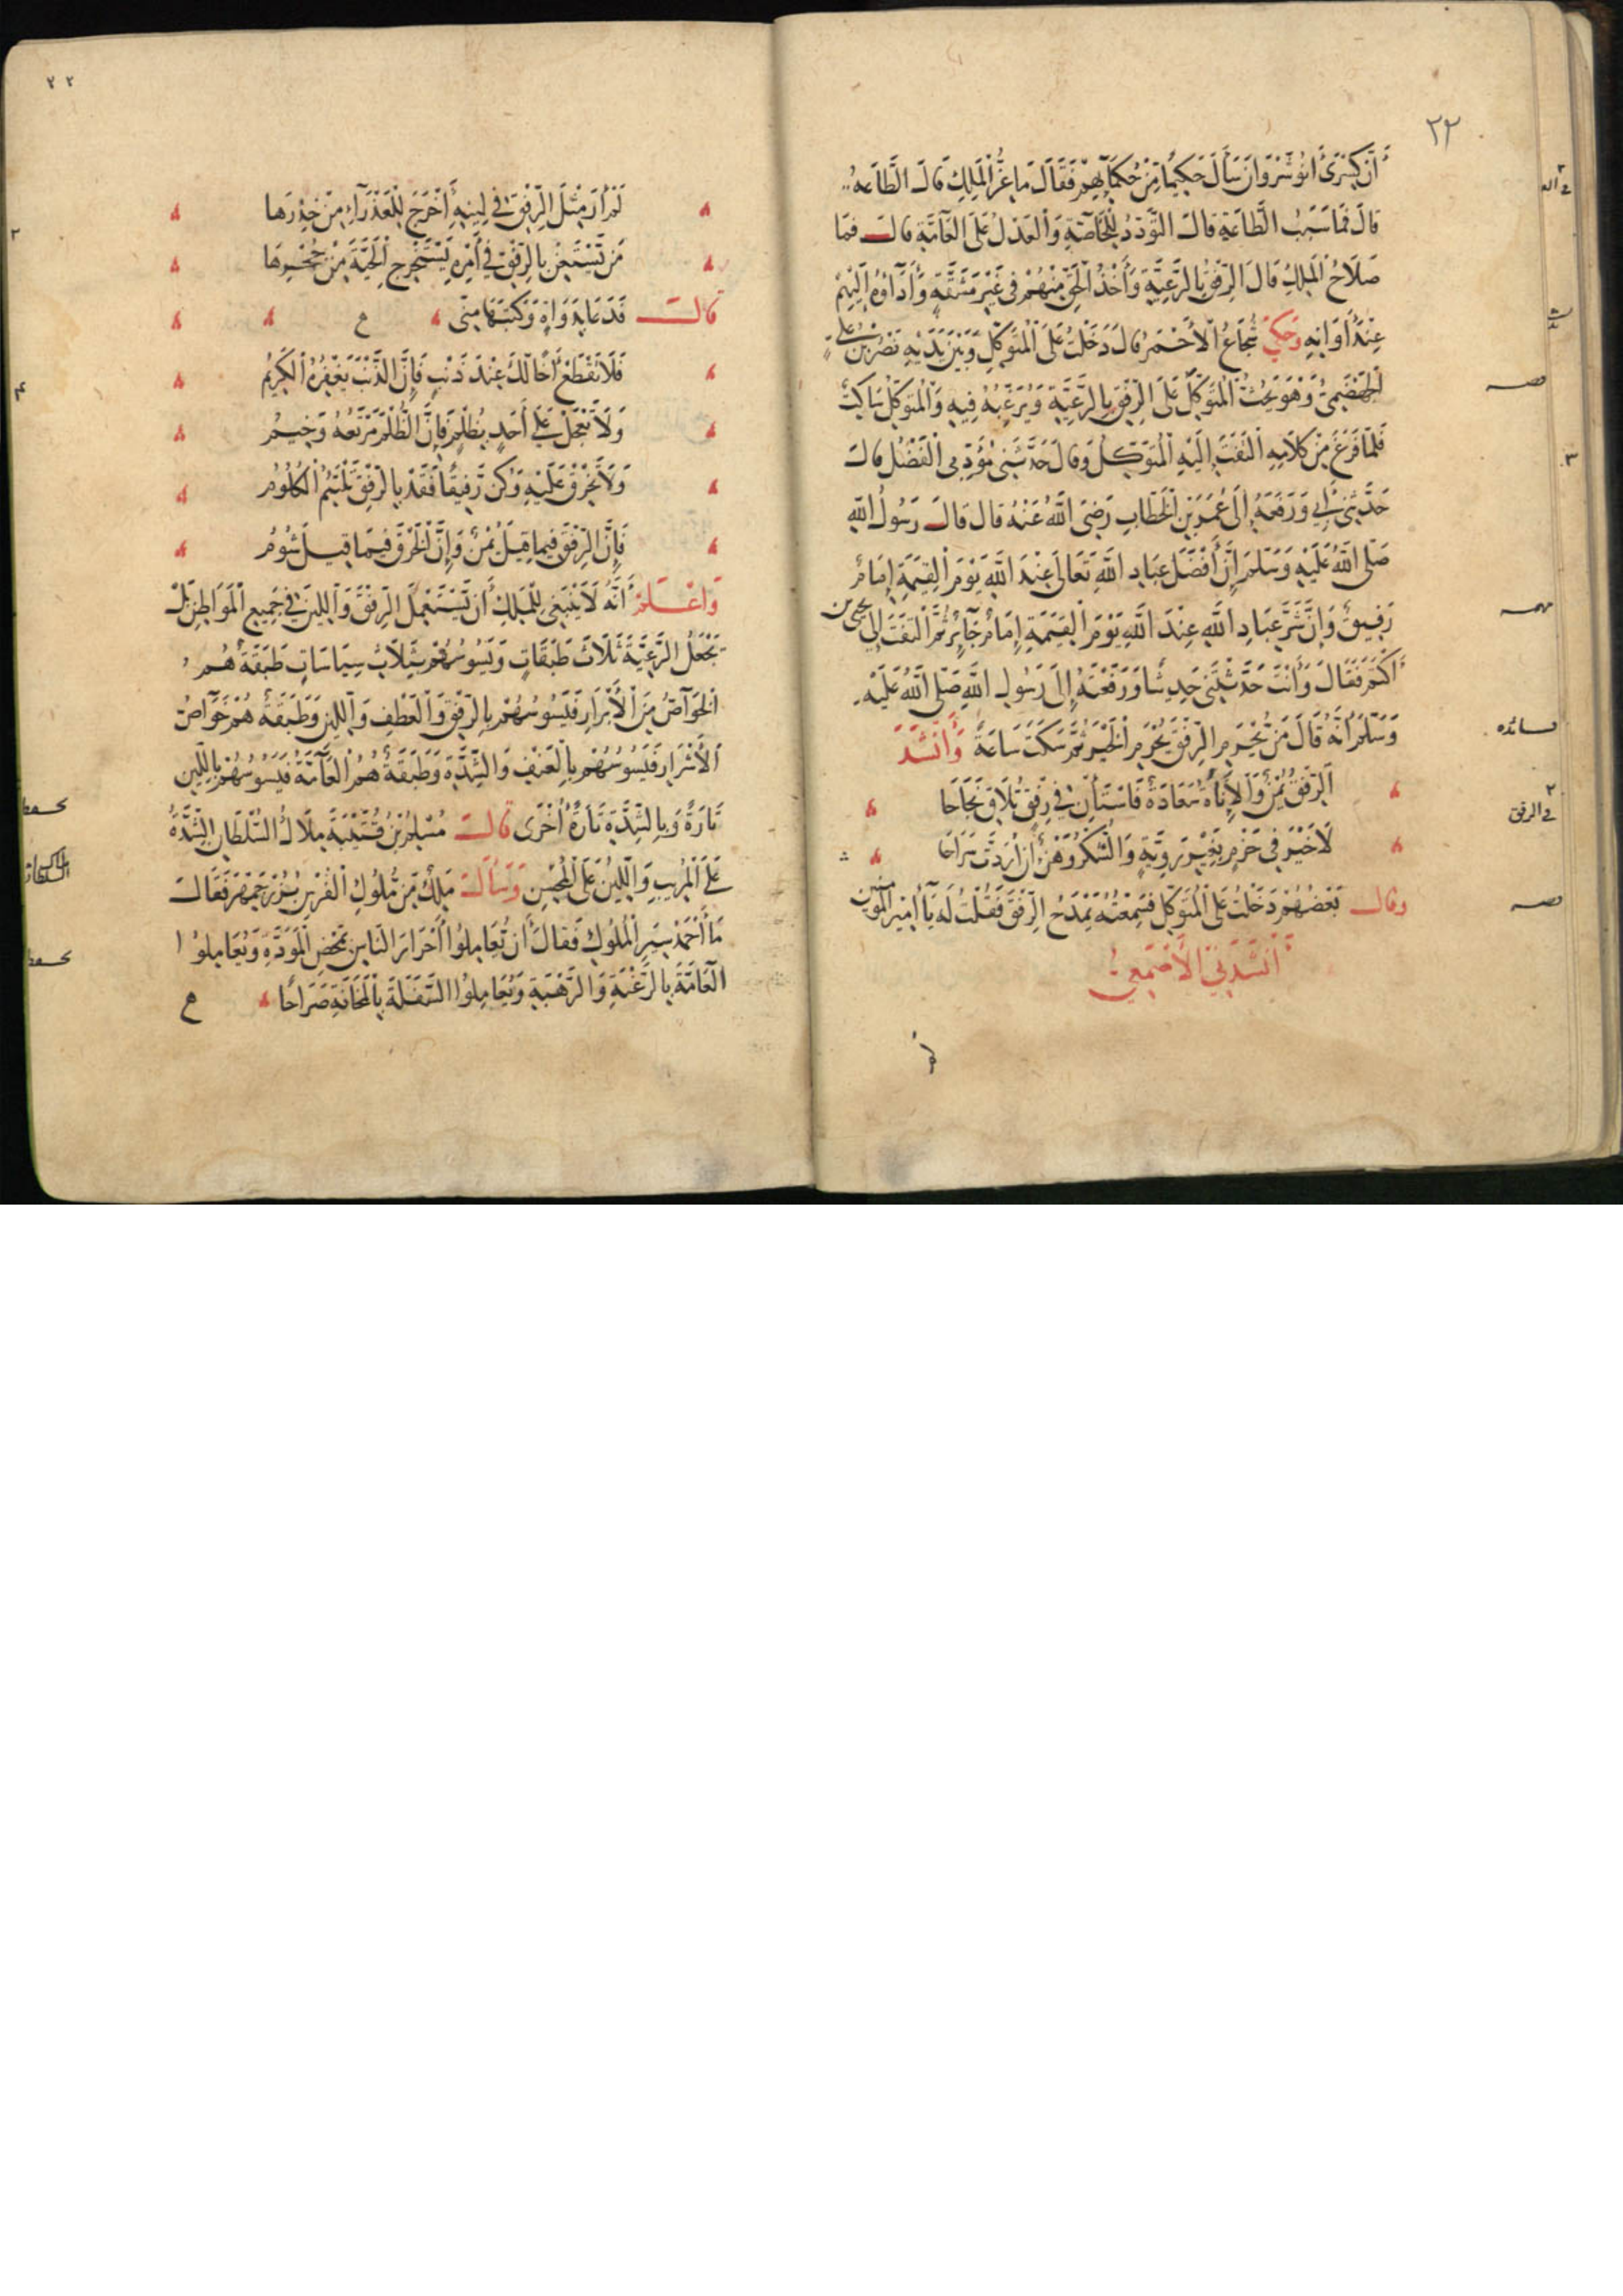 ٢٢
أَنَّ كِسْرَىٰ أَنُوشَرْوَانَ سَأَلَ حَكِيمًا مِنْ حُكَمَآئِهِمْ فَقَالَ مَا عِزُّ الْمَلِكِ قَالَ الطَّاعَةُ
قَالَ فَمَا سَبَبُ الطَّاعَةِ قَالَ التَّوَدُّدُ لِلْخَآصَّةِ وَالْعَدْلُ عَلَى الْعَآمَّةِ قَالَ فَمَا
صَلَاحُ الْمَلِكِ قَالَ الرِّفْقُ بِالرَّعِيَّةِ وَأَخْذُ الْحَقِّ مِنْهُمْ فِي غَيْرِ مَشَقَّةٍ وَأَدَآؤُهُ إِلَيْهِمْ
عِنْدَ أَوَانِهِ وَحُكِيَ شُجَاعُ الْأَحْمَرُ قَالَ دَخَلْتُ عَلَى الْمُتَوَكِّلِ وَبَيْنَ يَدَيْهِ نَصْرُ بْنُ عَلِي
الْجَهْضَمِيُّ وَهُوَ يَحُثُّ الْمُتَوَكِّلَ عَلَى الرِّفْقِ بِالرَّعِيَّةِ وَيُرَغِّبُهُ فِيهِ وَالْمُتَوَكِّلُ سَاكِتٌ
فَلَمَّا فَرَغَ مِنْ كَلَامِهِ الْتَفَتَ إِلَيْهِ الْمُتَوَكِّلُ وَقَالَ حَدَّثَنِي مُؤَدِّبِي الْفَضْلُ قَالَ
حَدَّثَنِي أَبِي وَرَفَعَهُ إِلَى عُمَرَ بْنِ الْخَطَّابِ رَضِيَ اللَّهُ عَنْهُ قَالَ قَالَ رَسُولُ اللَّهِ
صَلَّى اللَّهُ عَلَيْهِ وَسَلَّمَ إِنَّ أَفْضَلَ عِبَادِ اللَّهِ تَعَالَى عِنْدَ اللَّهِ يَوْمَ الْقِيَمَةِ إِمَامٌ
رَفِيقٌ وَإِنَّ شَرَّ عِبَادِ اللَّهِ عِنْدَ اللَّهِ يَوْمَ الْقِيَمَةِ إِمَامٌ جَآئِرٌ ثُمَّ الْتَفَتَ إِلَى يحيى بن
أَكْثَمَ فَقَالَ وَأَنْتَ حَدَّثْتَنِي حَدِيثًا وَرَفَعْتَهُ إِلَى رَسُولِ اللَّهِ صَلَّى اللَّهُ عَلَيْهِ
وَسَلَّمَ أَنَّهُ قَالَ مَنْ يُحْرَمِ الرِّفْقَ يُحْرَمِ الْخَيْرَ ثُمَّ سَكَتَ سَاعَةً وَأَنْشَدَ
الرِّفْقُ يُمْنٌ وَالْأَنَاةُ سَعَادَةٌ فَاسْتَأْنِ فِي رِفْقٍ تُلَاقِ نَجَاحَا
لَا خَيْرَ فِي حَزْمٍ بِغَيْرِ رَوِيَّةٍ وَالشَّكُّ وَهْنٌ إِنْ أَرَدْتَ سَرَاحَا
وقال بَعْضُهُمْ دَخَلْتُ عَلَى الْمُتَوَكِّلِ فَسَمِعْتُهُ يَمْدَحُ الرِّفْقَ فَقُلْتُ لَهُ يَا أَمِيرَ الْمُؤْمِنِينَ
أَنْشَدَنِي الْأَصْمَعِيُّ
في الرفق
٢٢
لَمْ أَرَ مِثْلَ الرِّفْقِ فِي لِينِهِ أَخْرَجَ لِلْعَذْرَآءِ مِنْ خِدْرِهَا
مَنْ يَسْتَعِنْ بِالرِّفْقِ فِي أَمْرِهِ يَسْتَخْرِجِ الْحَيَّةَ مِنْ جُحْرِهَا
قَالَ فَدَعَا بِدَوَاةٍ وَكَتَبَهَا مِنِّي
فَلَا تَقْطَعْ أَخًا لَكَ عِنْدَ ذَنْبٍ فَإِنَّ الذَّنْبَ يَغْفِرُهُ الْكَرِيمُ
وَلَا تَعْجَلْ عَلَى أَحَدٍ بِظُلْمٍ فَإِنَّ الظُّلْمَ مَرْتَعُهُ وَخِيمُ
وَلَا تَخْرَقْ عَلَيْهِ وَكُنْ رَفِيقًا فَقَدْ بِالرِّفْقِ تَلْتَئِمُ الْكُلُومُ
فَإِنَّ الرِّفْقَ فِيمَا قِيلَ يُمْنٌ وَإِنَّ الْخُرْقَ فِيمَا قِيلَ شُومُ
وَاعْلَمْ أَنَّهُ لَا يَنْبَغِي لِلْمَلِكِ أَنْ يَسْتَعْمِلَ الرِّفْقَ وَاللِّينَ فِي جَمِيعِ الْمَوَاطِنِ بَلْ
يَجْعَلُ الرَّعِيَّةَ ثَلَاثَ طَبَقَاتٍ وَيَسُوسُهُمْ بِثَلَاثِ سِيَاسَاتٍ طَبَقَةٌ هُمْ
الْخَوَآصُّ مِنَ الْأَبْرَارِ فَيَسُوسُهُمْ بِالرِّفْقِ وَالْعَطْفِ وَاللِّينِ وَطَبَقَةٌ هُمْ خَوَآصُّ
الْأَشْرَارِ فَيَسُوسُهُمْ بِالْعُنْفِ وَالشِّدَّةِ وَطَبَقَةٌ هُمُ الْعَآمَّةُ فَيَسُوسُهُمْ بِاللِّينِ
تَارَةً وَبِالشِّدَّةِ تَارَةً أُخْرَى قَالَ مُسْلِمُ بْنُ قُتَيْبَةَ مِلَاكُ السُّلْطَانِ الشِّدَّةُ
عَلَى الْمُرِيبِ وَاللِّينُ عَلَى الْمُحْسِنِ وَسَأَلَ مَلِكٌ مِنْ مُلُوكِ الْفُرْسِ بُزُرْجَمِهْرَ فَقَالَ
مَا أَحْمَدُ سِيَرِ الْمُلُوكِ فَقَالَ أَنْ تُعَامِلُوا أَحْرَارَ النَّاسِ بِمَحْضِ الْمَوَدَّةِ وَيُعَامِلُوا
الْعَآمَّةَ بِالرَّغْبَةِ وَالرَّهْبَةِ وَيُعَامِلُوا السَّفَلَةَ بِالْمَخَافَةِ صَرَاحًا